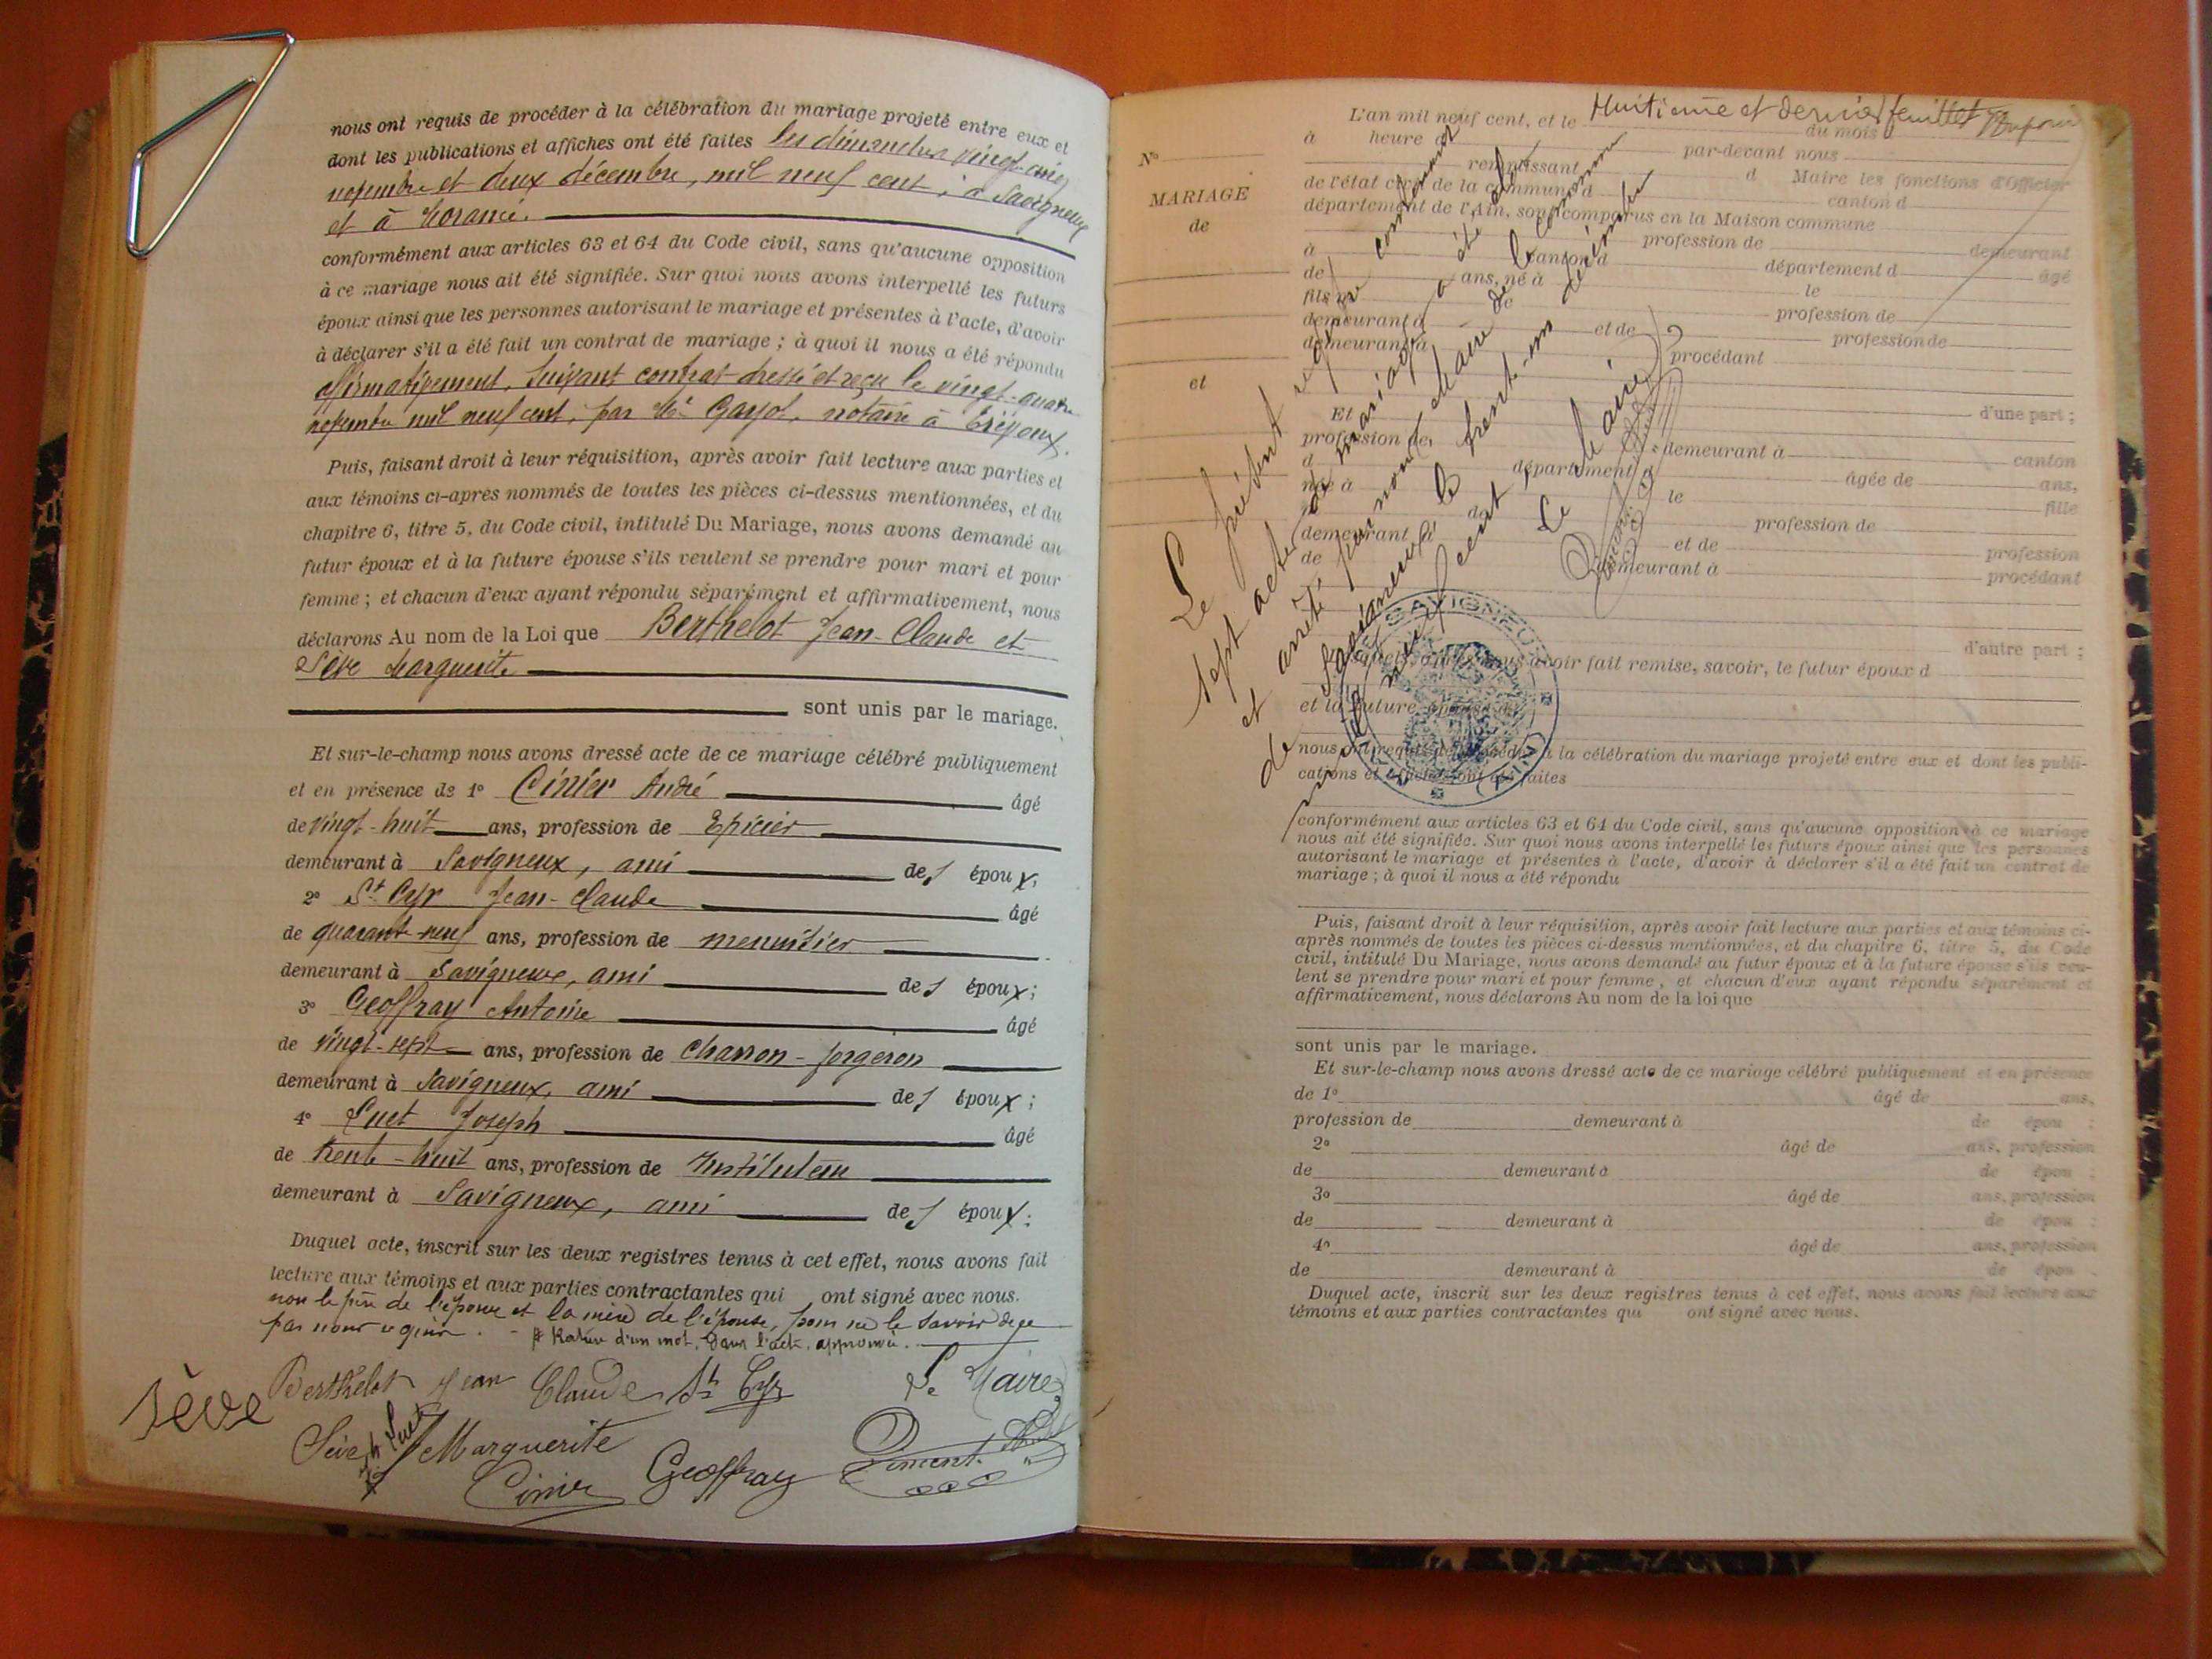 nous ont requis de procéder à la célébration du mariage projeté entre eux et
dont les publications et affiches ont été faites les dimanches vingt-cinq
novembre et deux décembre, mil neuf cent, à Savigneux
et à Morancé.
conformément aux articles 63 et 64 du Code civil, sans qu'aucune opposition
à ce mariage nous ait été signifiée. Sur quoi nous avons interpellé les futurs
époux ainsi que les personnes autorisant le mariage et présentes à l'acte, d'avoir
à déclarer s'il a été fait un contrat de mariage ; à quoi il nous a été répondu
affirmativement, suivant contrat dressé et reçu le vingt-quatre
novembre mil neuf cent, par Me Gayot, notaire à Trévoux.
Puis, faisant droit à leur réquisition, après avoir fait lecture aux parties et
aux témoins ci-après nommés de toutes les pièces ci-dessus mentionnées, et du
chapitre 6, titre 5, du Code civil, intitulé Du Mariage, nous avons demandé au
futur époux et à la future épouse s'ils veulent se prendre pour mari et pour
femme ; et chacun d'eux ayant répondu séparément et affirmativement, nous
déclarons Au nom de la Loi que Berthelot Jean-Claude et
Sève Marguerite
sont unis par le mariage.
Et sur-le-champ nous avons dressé acte de ce mariage célébré publiquement
et en présence de 1° Cinier André âgé
de vingt-huit ans, profession de Epicier
demeurant à Savigneux, ami des époux,
2° St Cyr Jean-Claude âgé
de quarante-neuf ans, profession de menuisier
demeurant à Savigneux, ami des époux ;
3° Geoffray Antoine âgé
de vingt-sept ans, profession de charron-forgeron
demeurant à Savigneux, ami des époux ;
4° Suet Joseph âgé
de trente-huit ans, profession de Instituteur
demeurant à Savigneux, ami des époux ;
Duquel acte, inscrit sur les deux registres tenus à cet effet, nous avons fait
lecture aux témoins et aux parties contractantes qui ont signé avec nous.
non le père de l'époux et la mère de l'épouse, pour ne le savoir de ce
par nous requis. Rature d'un mot, dans l'acte, approuvée.
Berthelot Jean Claude St Cyr Le Maire
Sève
Sève Marguerite J Suet
Cinier Geoffray
L'an mil neuf cent, et le Huitième et dernier feuillet
à heure d du mois d
N° par-devant nous
remplissant d Maire les fonctions d'Officier
MARIAGE de l'état civil de la commune d canton d
département de l'Ain, sont comparus en la Maison commune
de profession de demeurant
à canton d département d âgé
de ans, né à le
fils de profession de
demeurant à et de profession de
demeurant à procédant
et
Et d'une part ;
profession de demeurant à canton
d département d âgée de ans,
née à le fille
de profession de
demeurant à et de profession
de demeurant à procédant
d'autre part ;
Le présent registre contenant
sept actes de mariage a été clos
et arrêté par nous Maire de la commune
de Savigneux le trente-un décembre
mil neuf cent
Le Maire
SAVIGNEUX
(AIN)
avoir fait remise, savoir, le futur époux d
et la future épouse d
nous ont requis de procéder à la célébration du mariage projeté entre eux et dont les publi-
cations et affiches ont été faites
conformément aux articles 63 et 64 du Code civil, sans qu'aucune opposition à ce mariage
nous ait été signifiée. Sur quoi nous avons interpellé les futurs époux ainsi que les personnes
autorisant le mariage et présentes à l'acte, d'avoir à déclarer s'il a été fait un contrat de
mariage ; à quoi il nous a été répondu
Puis, faisant droit à leur réquisition, après avoir fait lecture aux parties et aux témoins ci-
après nommés de toutes les pièces ci-dessus mentionnées, et du chapitre 6, titre 5, du Code
civil, intitulé Du Mariage, nous avons demandé au futur époux et à la future épouse s'ils veu-
lent se prendre pour mari et pour femme, et chacun d'eux ayant répondu séparément et
affirmativement, nous déclarons Au nom de la loi que
sont unis par le mariage.
Et sur-le-champ nous avons dressé acte de ce mariage célébré publiquement et en présence
de 1° âgé de ans,
profession de demeurant à de épou ;
2° âgé de ans, profession
de demeurant à de épou ;
3° âgé de ans, profession
de demeurant à de épou ;
4° âgé de ans, profession
de demeurant à de épou .
Duquel acte, inscrit sur les deux registres tenus à cet effet, nous avons fait lecture aux
témoins et aux parties contractantes qui ont signé avec nous.